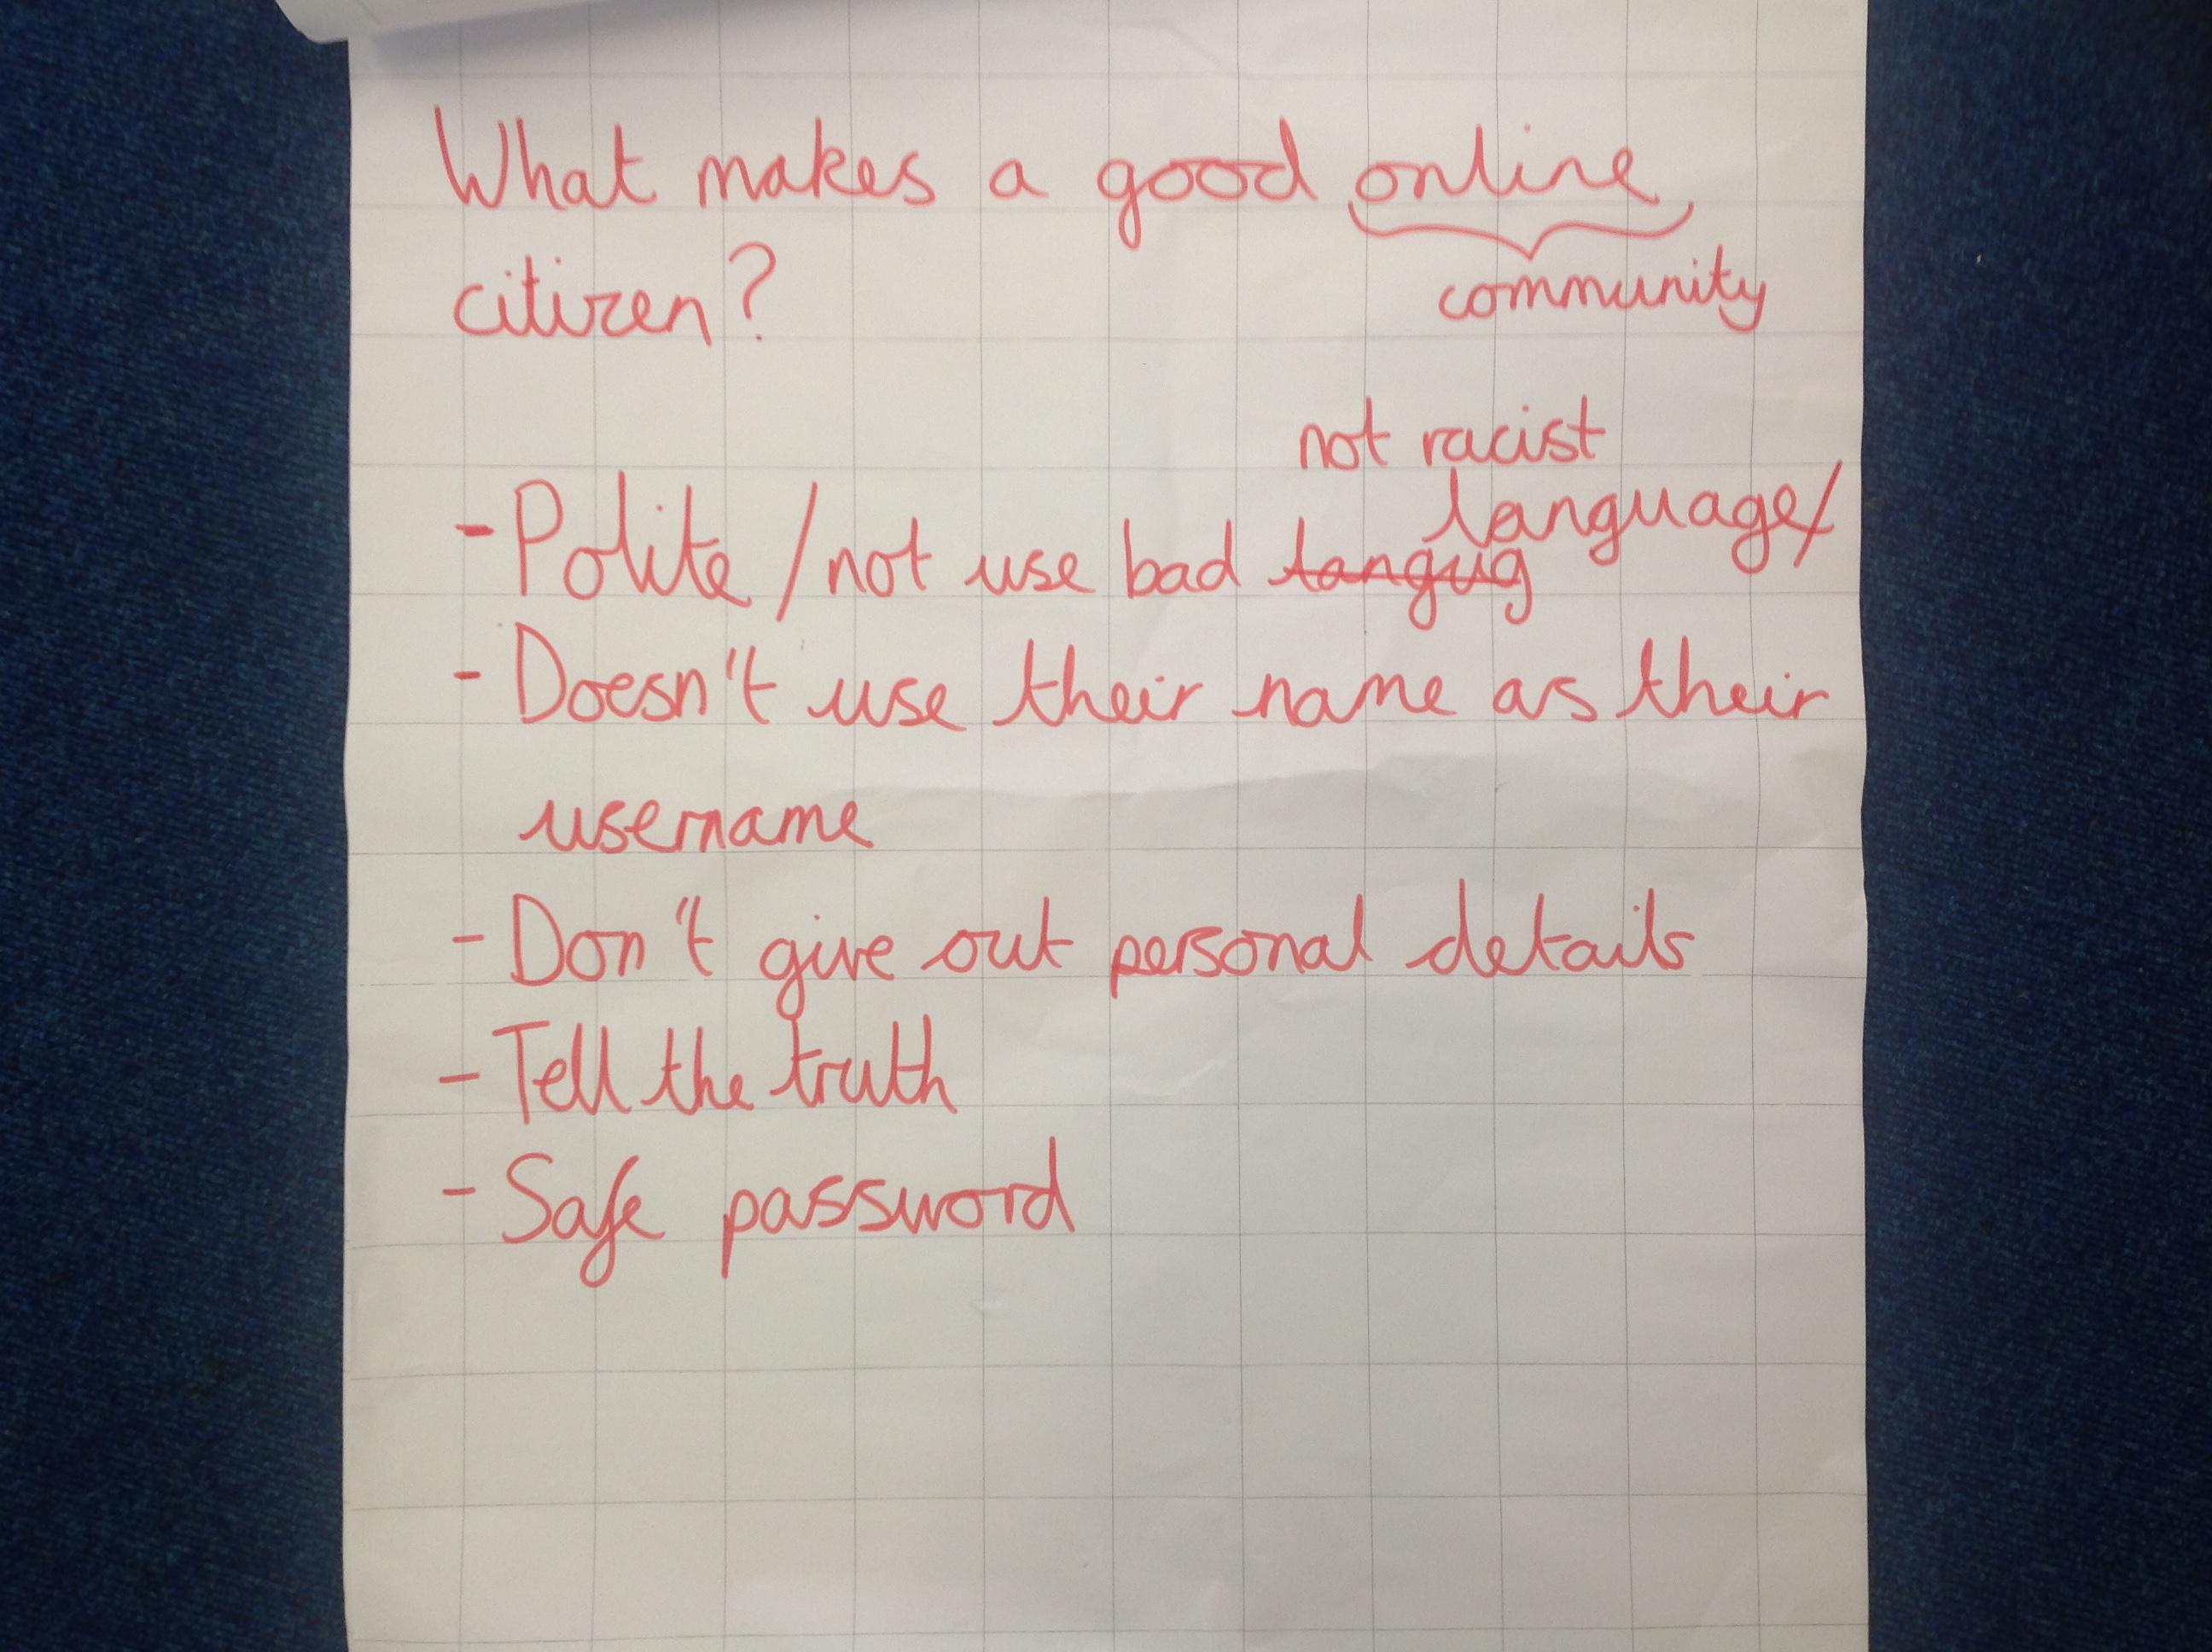 What makes a good online
citizen?
community
not racist
language/
- Polite / not use bad langug
- Doesn't use their name as their
username
- Don't give out personal details
- Tell the truth
- Safe password